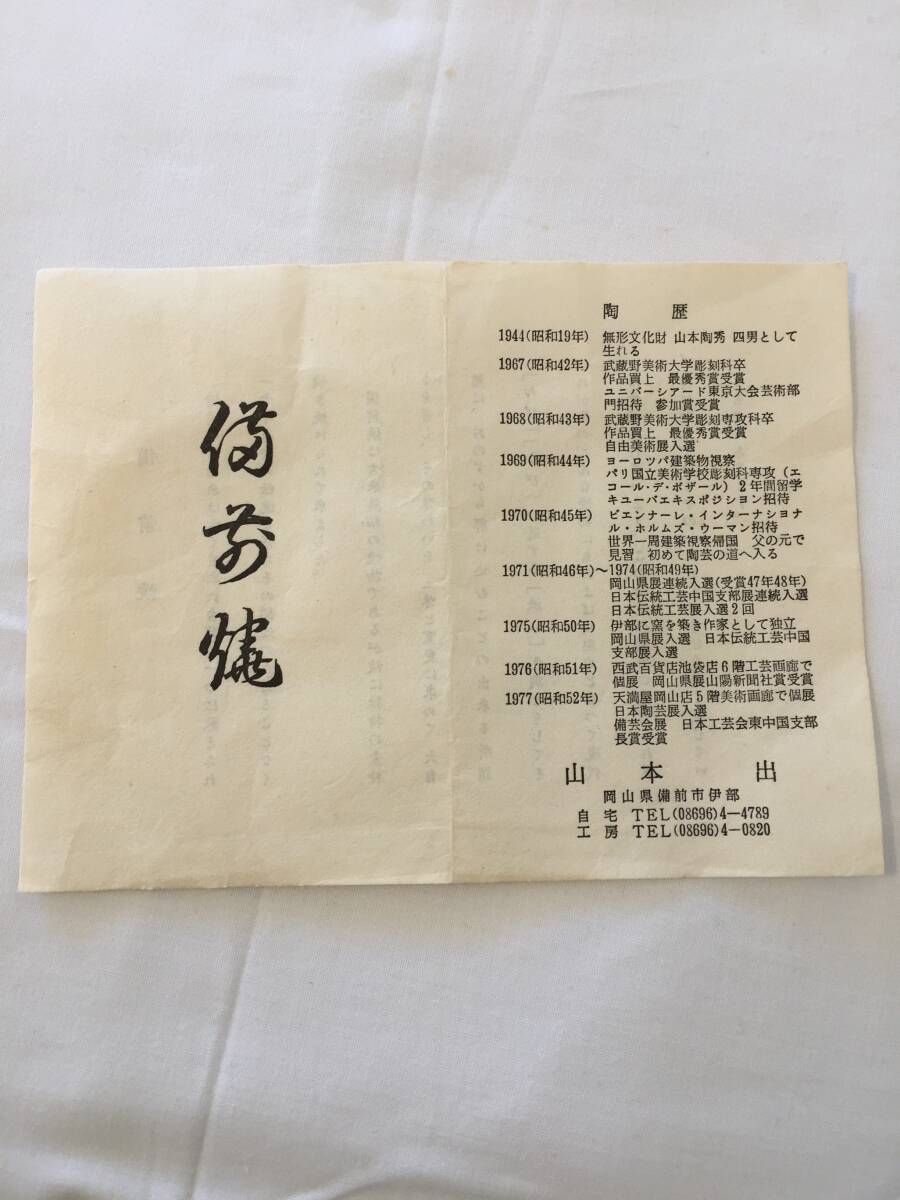 備前燒
陶 歴
1944(昭和19年) 無形文化財 山本陶秀 四男として
生れる
1967(昭和42年) 武蔵野美術大学彫刻科卒
作品買上 最優秀賞受賞
ユニバーシアード東京大会芸術部
門招待 参加賞受賞
1968(昭和43年) 武蔵野美術大学彫刻専攻科卒
作品買上 最優秀賞受賞
自由美術展入選
1969(昭和44年) ヨーロツパ建築物視察
パリ国立美術学校彫刻科専攻(エ
コール・デ・ボザール) 2年間留学
キユーバエキスポジシヨン招待
1970(昭和45年) ビエンナーレ・インターナシヨナ
ル・ホルムズ・ウーマン招待
世界一周建築視察帰国 父の元で
見習 初めて陶芸の道へ入る
1971(昭和46年)～1974(昭和49年)
岡山県展連続入選(受賞47年48年)
日本伝統工芸中国支部展連続入選
日本伝統工芸展入選2回
1975(昭和50年) 伊部に窯を築き作家として独立
岡山県展入選 日本伝統工芸中国
支部展入選
1976(昭和51年) 西武百貨店池袋店6階工芸画廊で
個展 岡山県展山陽新聞社賞受賞
1977(昭和52年) 天満屋岡山店5階美術画廊で個展
日本陶芸展入選
備芸会展 日本工芸会東中国支部
長賞受賞
山 本 出
岡山県備前市伊部
自 宅 TEL(08696)4―4789
工 房 TEL(08696)4―0820